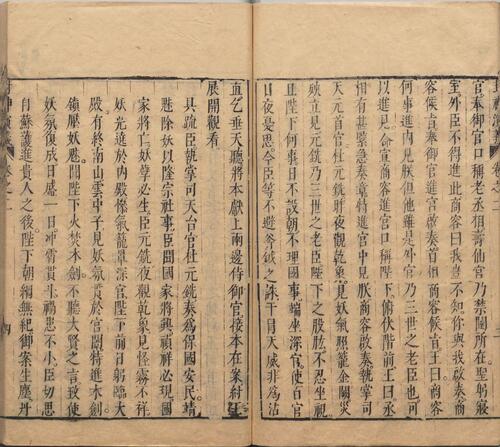 官奉御官口稱老丞相壽仙宫乃禁闥所在聖躬寢
室外臣不得進此商容曰我豈不知你與我啟奏商
容候旨奉御官進宫啟奏首相商容候旨王曰商容
何事進内見朕但他雖是外官乃三世之老臣也可
以進見命宣商容進宫口稱陛下俯伏階前王曰丞
相有甚緊急奏章特進宫中見朕商容啟奏執掌司
天元首官杜元銑昨夜觀乾象見妖氣照籠金闕災
殃立見元銑乃三世之老臣陛下之股肱不忍坐視
且陛下何事日不設朝不理國事端坐深宫使百官
日夜憂思今臣等不避斧鉞之誅干冒天威非為沽
直乞垂天聽將本獻上兩邊侍御官接本在案紂王
展開觀看
具疏臣執掌司天台官杜元銑奏為保國安民靖
魅除妖以隆宗社事臣聞國家將興禎祥必現國
家將亡妖孽必生臣元銑夜觀乾象見怪霧不祥
妖光遶於内殿慘氣籠罩深宫陛下前日躬臨大
殿有終南山雲中子見妖氛貫於宫闈特進木劍
鎮壓妖魅聞陛下火焚木劍不聽大賢之言致使
妖氛復成日盛一日冲霄貫斗禍患不小臣切思
自蘇護進貴人之後陛下朝綱無紀御案生塵丹
四